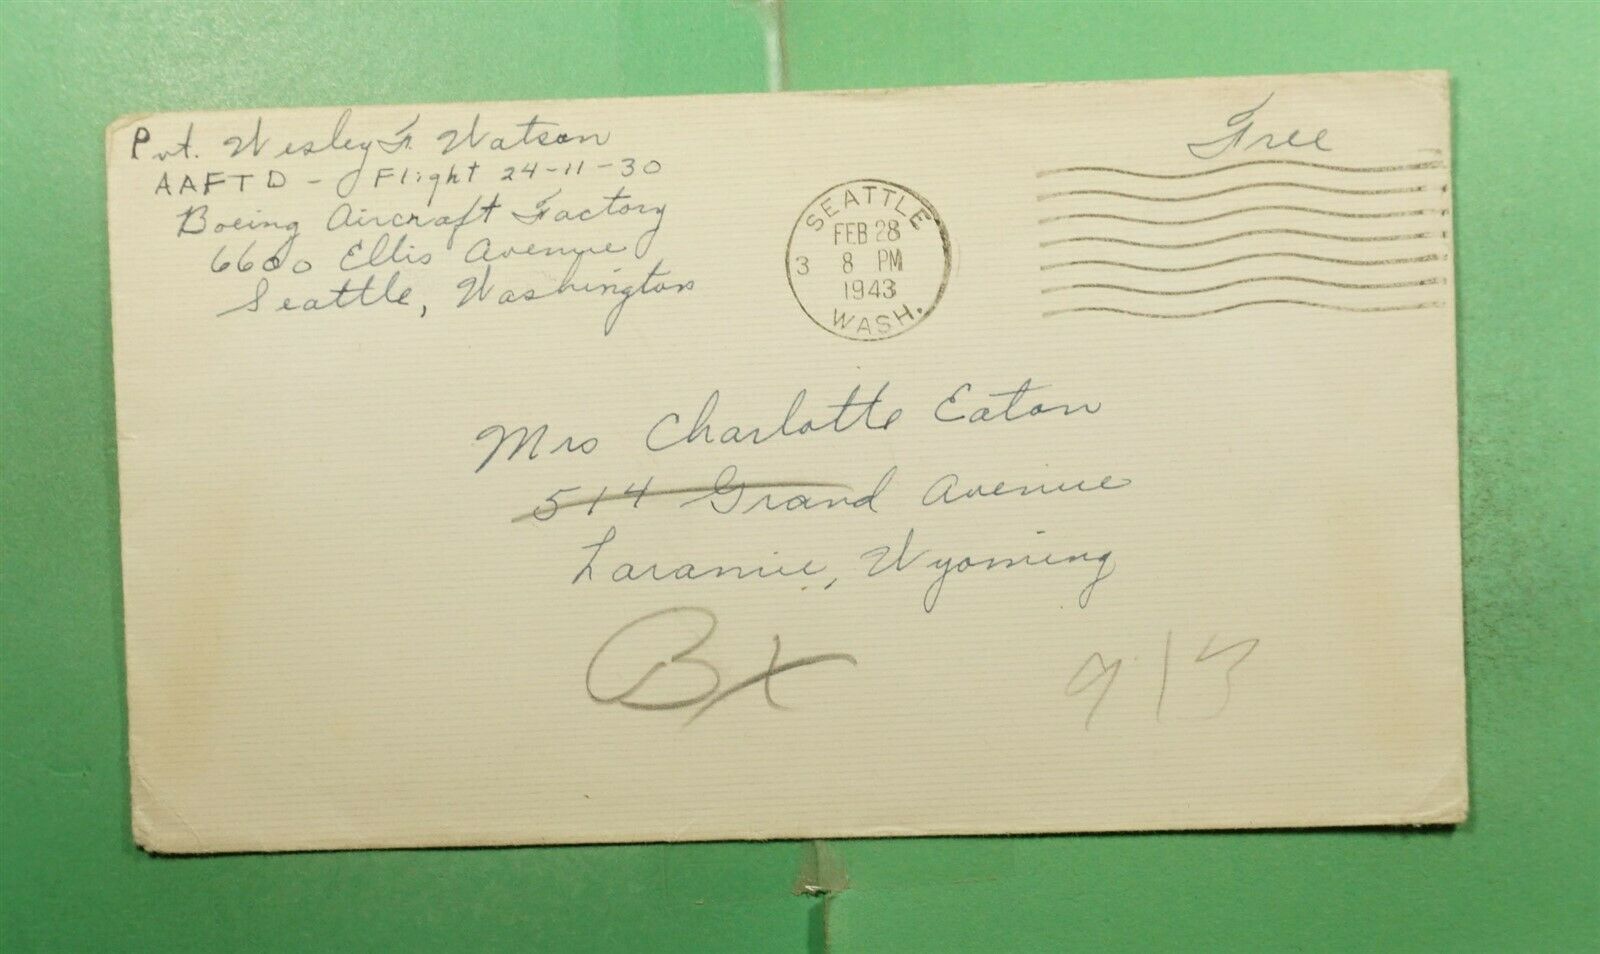 Pvt. Wesley F. Watson
AAFTD - Flight 24-11-30
Boeing Aircraft Factory
6600 Ellis Avenue
Seattle, Washington
Free
SEATTLE
FEB 28
3 8 PM
1943
WASH.
Mrs Charlotte Eaton
514 Grand Avenue
Laramie, Wyoming
Bx 913